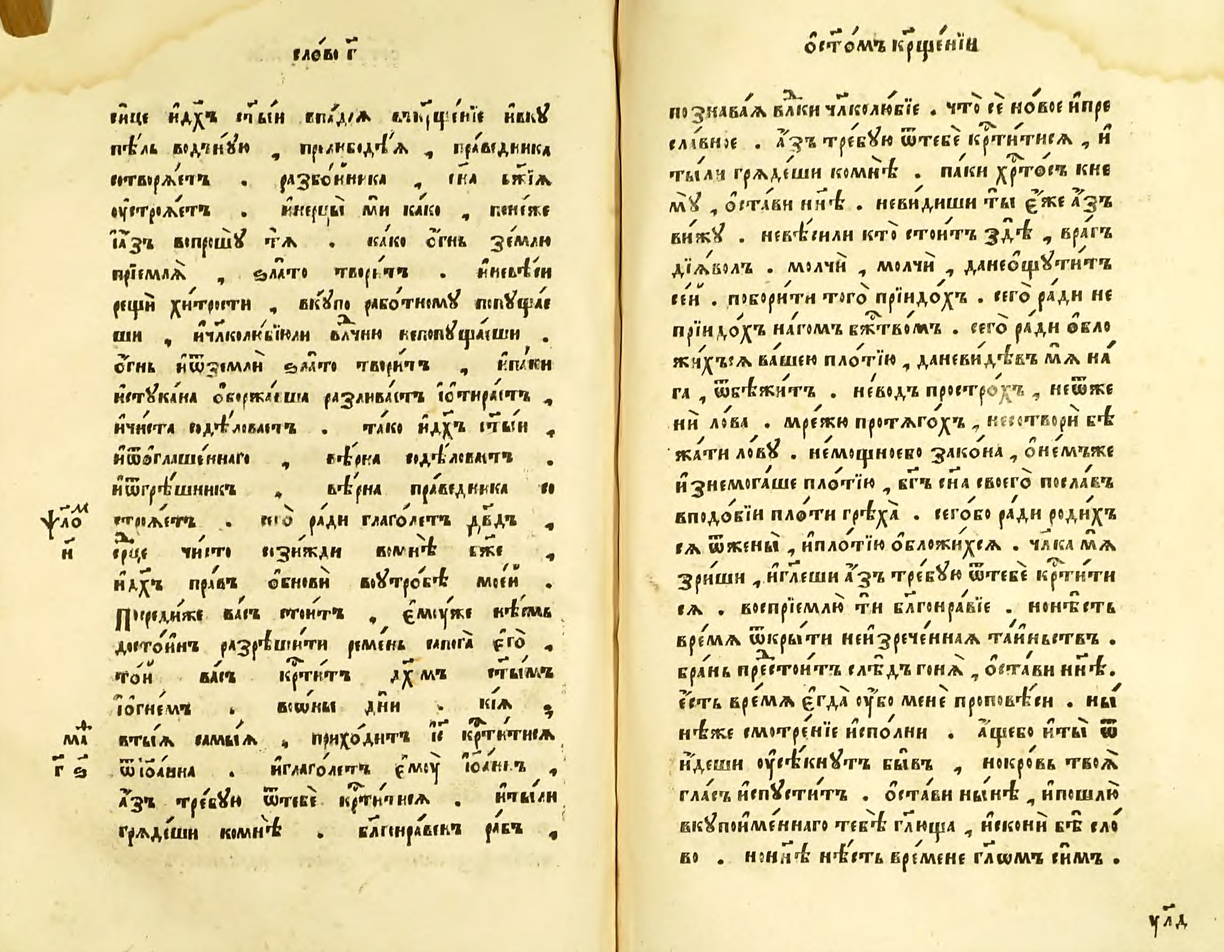 сло́во г҃
си́це и҆дх҃ъ ст҃ы́и впа́дꙗ вкр҃ще́нїе и҆вкꙋ
пѣ́ль во́днꙋю , прелюбодѣ́ѧ , пра́ведника
сотворѧ́етъ . разбо́йника , сн҃а бж҃їѧ
оу҆строѧ́етъ . и҆нерцы́ ми ка́ко , поне́же
і҆а҆́зъ вопрошꙋ̀ тѧ̀ . ка́ко ѻ҆́гнь зе́млю
прїе́млѧ , ѕла́то твори́тъ . и҆невѣ́си
рещѝ хи́трости , вкꙋ́пѣ рабо́тномꙋ попꙋща́е
ши , и҆чл҃колю́бїюли влⷣчню непопꙋща́еши .
ѻ҆́гнь и҆ѿземлѝ ѕла́то твори́тъ , и҆па́ки
и҆стꙋка́на ѡ҆боржа́вша разлива́етъ і҆ѻ҆тира́етъ ,
и҆чи́ста содѣ́ловаетъ . та́ко и҆дх҃ъ ст҃ы́и ,
и҆ѿѡ҆глаше́ннаго , вѣ́рна содѣ́ловаетъ .
и҆ѿгрѣ́шникъ , вѣ́рна пра́ведника со
строѧ́етъ . сего̀ ра́ди глаго́летъ дв҃дъ ,
ѱало́м
н҃
срⷣце чи́сто сози́жди вомнѣ̀ бж҃е ,
и҆дх҃ъ пра́въ ѡ҆бновѝ воꙋтро́бѣ мое́й .
Посреди́же ва́съ стои́тъ , є҆мꙋ́же нѣ́смь
досто́инъ разрѣши́ти реме́нь сапога̀ є҆гѡ̀ ,
то́й ва́съ крⷭ҇ти́тъ дх҃мъ ст҃ы́мъ
і҆ѻ҆гне́мъ . воѡ҆́ны дни̑ . кі́ѧ ,
втыѧ̑ са́мыѧ , прихо́дитъ і҆с҃ крⷭ҇ти́тисѧ
маⷴ҇
г҃ ѕ҃
ѿі҆ѻа́нна . и҆глаго́летъ є҆мꙋ̀ і҆ѻа́ннъ ,
а҆́зъ тре́бꙋю ѿтебѐ крⷭ҇ти́тисѧ . и҆ты́ли
грѧде́ши комнѣ̀ . бл҃гонра́венъ ра́бъ ,
ѡ҆ст҃о́мъ кр҃ще́нїи
познава́ѧ влⷣки чл҃колю́бїе . что̀ сѐ но́вое и҆пре
сла́вное . а҆́зъ тре́бꙋю ѿтебѐ крⷭ҇ти́тисѧ , и҆
ты́ли грѧде́ши комнѣ̀ . па́ки хрⷭ҇то́съ кне
мꙋ̀ , ѡ҆ста́ви нн҃ѣ . неви́диши ты̀ є҆́же а҆́зъ
ви́жꙋ . невѣ́сили кто̀ стои́тъ здѣ̀ , вра́гъ
дїѧ́волъ . молчѝ , молчѝ , данеѡ҆щꙋти́тъ
се́й . побори́ти того̀ прїидо́хъ . сего̀ ра́ди не
прїидо́хъ на́гомъ бжⷭ҇тво́мъ . сего̀ ра́ди ѡ҆бло
жи́хъсѧ ва́шею пло́тїю , даневи́дѣвъ мѧ̀ на́
га , ѿбѣжи́тъ . не́водъ простро́хъ , неѿже
нѝ ло́ва . мре́жю протѧго́хъ , несотворѝ бѣ
жа́ти ло́вꙋ . немощно́ебо зако́на , ѡ҆не́мъже
и҆знемога́ше пло́тїю , бг҃ъ сн҃а своего̀ посла́въ
вподо́бїи пло́ти грѣха̀ . сего́бо ра́ди роди́хъ
сѧ ѿжены̀ , и҆пло́тїю ѡ҆бложи́хсѧ . чл҃ка мѧ̀
зри́ши , и҆гл҃еши а҆́зъ тре́бꙋю ѿтебѐ крⷭ҇ти́ти
сѧ . воспрїе́млю тѝ бл҃гонра́вїе . нонѣ́сть
вре́мѧ ѿкры́ти неи҆зрече́ннаѧ та́иньствъ .
бра́нь предстои́тъ слѣ́дъ гонѧ̀ , ѡ҆ста́ви нн҃ѣ .
є҆́сть вре́мѧ є҆гда̀ оу҆́бо менѐ проповѣ́си . ны́
нѣже смотре́нїе и҆спо́лни . а҆́щебо и҆ты̀ ѿ
и҆́деши оу҆сѣ́кнꙋтъ бы́въ , нокро́вь твоѧ̀
гла́съ и҆спꙋсти́тъ . ѡ҆ста́ви ны́нѣ , и҆пошлю̀
вкꙋпои҆ме́ннаго тебѣ̀ гл҃юща , и҆сконѝ бѣ̀ сло́
во . нонн҃ѣ нѣ́сть вре́мене гл҃ѡмъ си́мъ .
ꙋл҃д